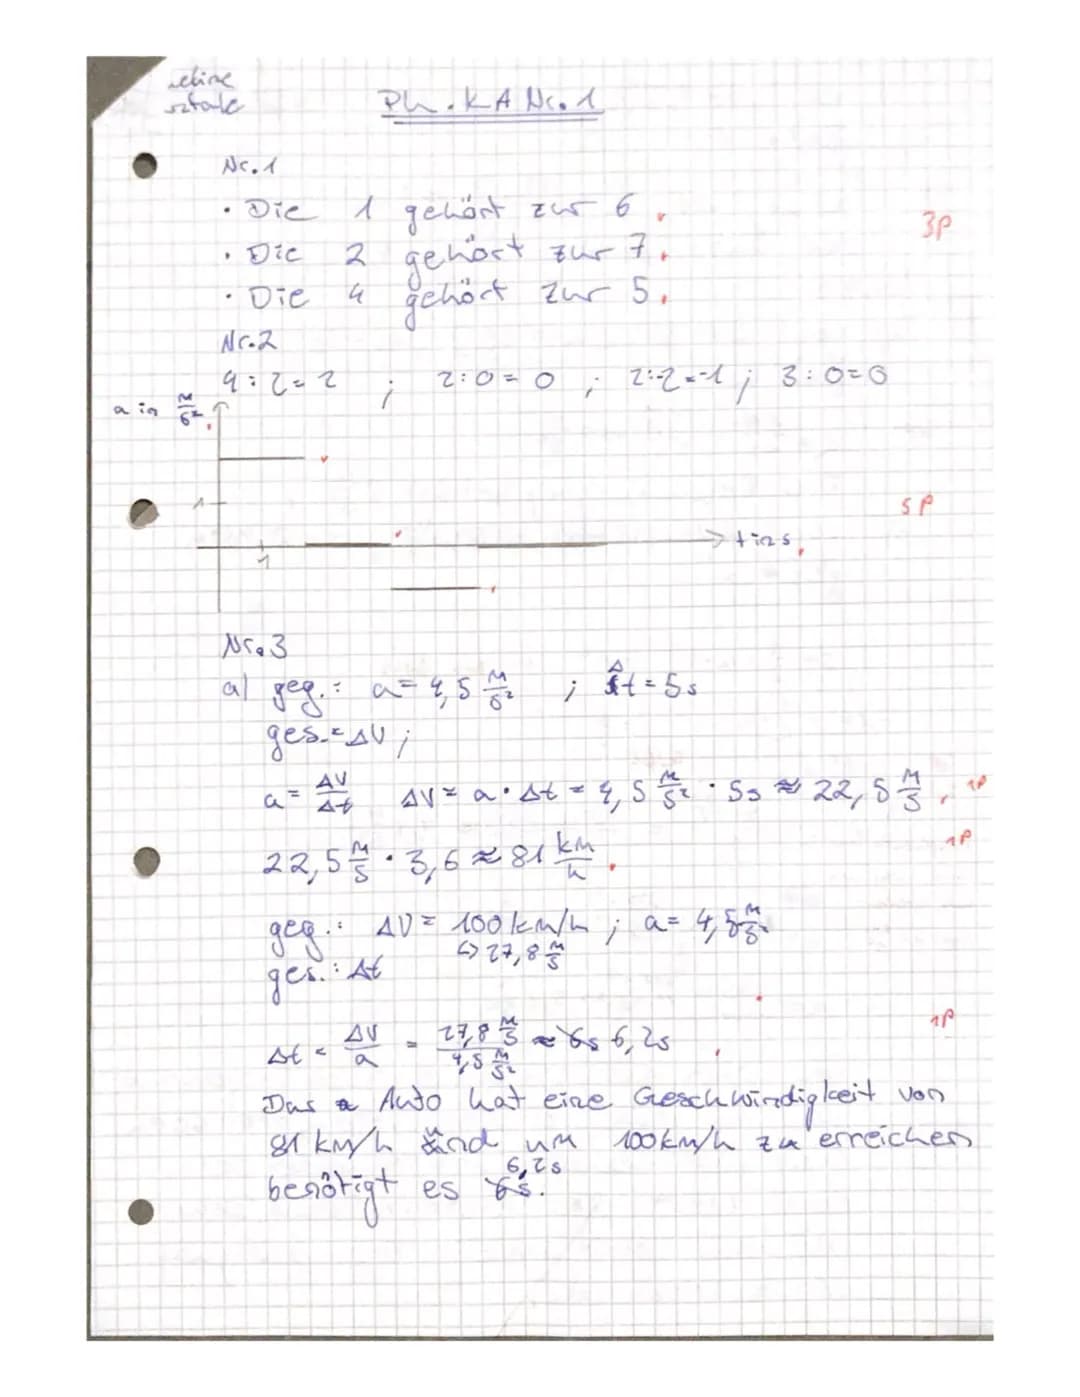 Ph. KA Nr. 1
Nr. 1
• Die 1 gehört zur 6.
3P
• Die 2 gehört zur 7.
• Die 4 gehört zur 5.
Nr. 2
4 : 2 = 2 ; 2 : 0 = 0 ; 2 : -2 = -1 ; 3 : 0 = 0
a in m/s²
1
5P
t in s
1
Nr. 3
a) geg.: a = 4,5 m/s² ; Δt = 5s
ges. = ΔV ;
a = ΔV/Δt ΔV = a · Δt = 4,5 m/s² · 5s ≈ 22,5 m/s 1P
22,5 m/s · 3,6 ≈ 81 km/h 1P
geg.: ΔV = 100 km/h ; a = 4,5 m/s²
↳ 27,8 m/s
ges.: Δt
Δt = ΔV/a = 27,8 m/s / 4,5 m/s² ≈ 6s 6,2s 1P
Das Auto hat eine Geschwindigkeit von
81 km/h und um 100 km/h zu erreichen
6,2s
benötigt es 6s.